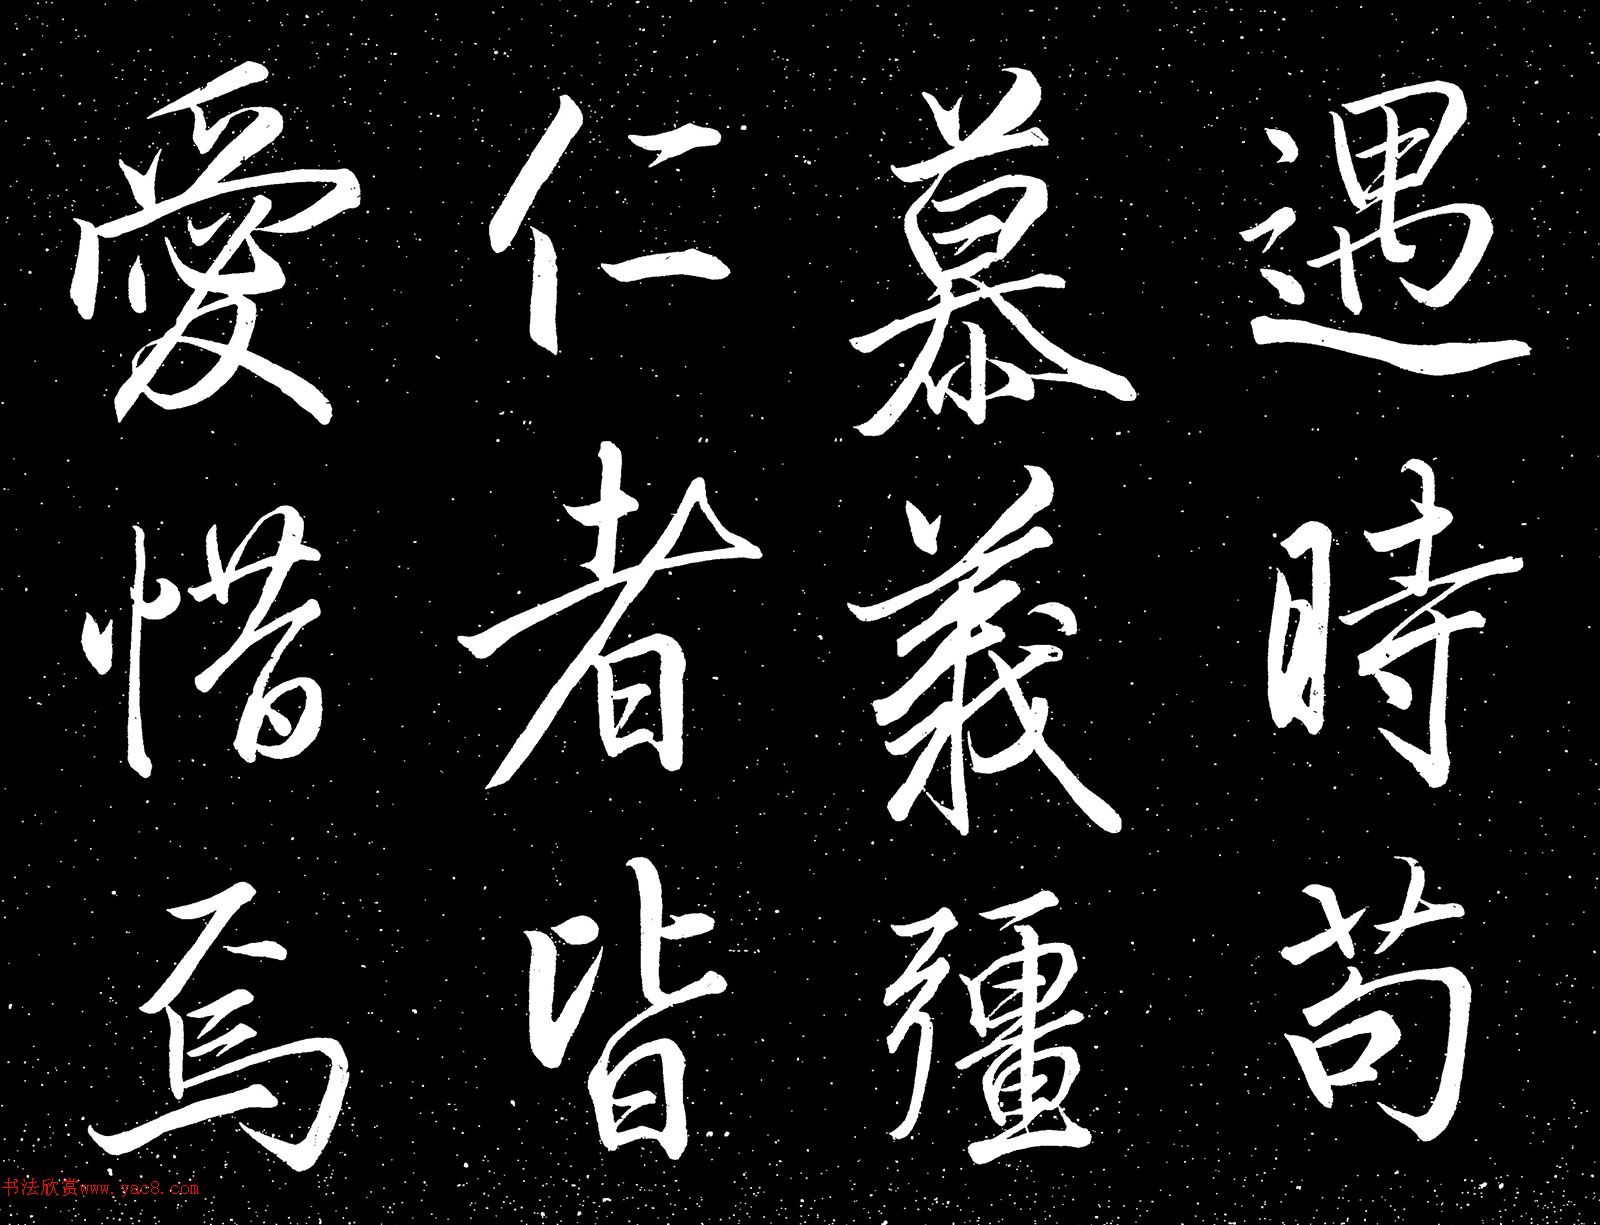 遇時苟
慕義彊
仁者皆
愛惜焉
书法欣赏www.yac8.com